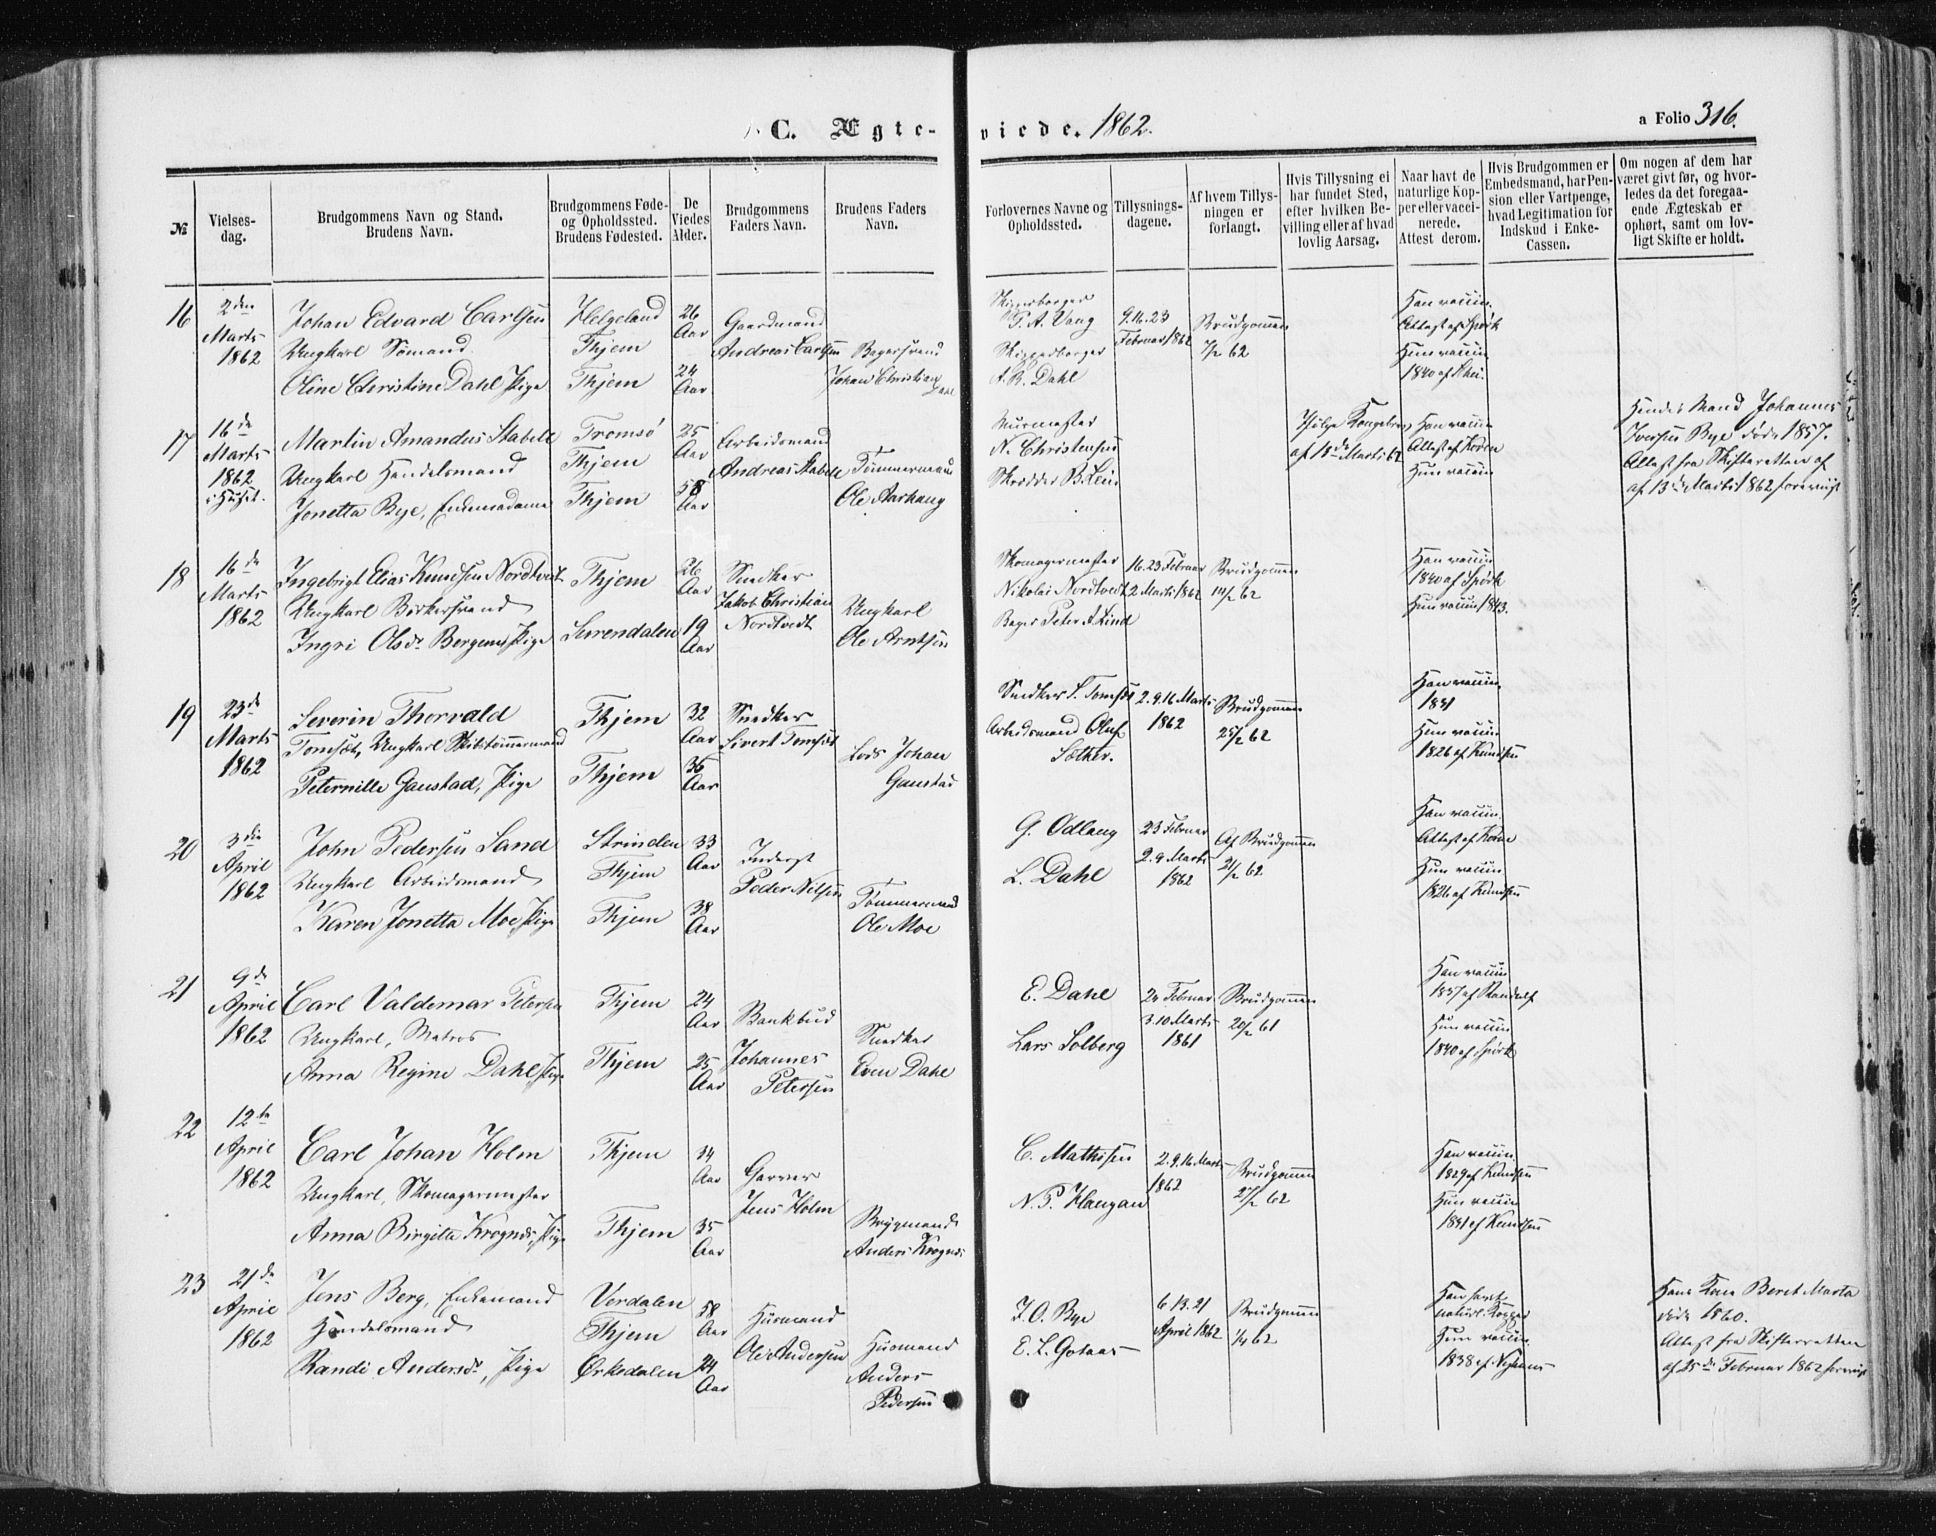 C. Ægte-
viede. 1862.
a Folio 316.
№
Vielses-
dag.
Brudgommens Navn og Stand.
Brudens Navn.
Brudgommens Føde-
og Opholdssted.
Brudens Fødested.
De
Viedes
Alder.
Brudgommens
Faders Navn.
Brudens Faders
Navn.
Forlovernes Navne og
Opholdssted.
Tillysnings-
dagene.
Af hvem Tillys-
ningen er
forlangt.
Hvis Tillysning ei
har fundet Sted,
efter hvilken Be-
villing eller af hvad
lovlig Aarsag.
Naar havt de
naturlige Kop-
per eller vacci-
nerede.
Attest derom.
Hvis Brudgommen er
Embedsmand, har Pen-
sion eller Vartpenge,
hvad Legitimation for
Indskud i Enke-
Cassen.
Om nogen af dem har
været givt før, og hvor-
ledes da det foregaa-
ende Ægteskab er
ophørt, samt om lov-
ligt Skifte er holdt.
16
2den
Marts
1862
Johan Edvard Carlsen
Ungkarl Sømand.
Oline Christine Dahl Pige
Helgeland
Thjem
Thjem
26
Aar
24
Aar
Gaardmand
Andreas Carlsen
Bagersvend
Johan Christian
Dahl
Skipperborger
P. A. Vang
Skipperborger
A. R. Dahl
9.16.23
Februar 1862
Brudgommen
7/2 62
Han vaccin.
Attest af Spørk
Hun vaccin
1840 af
17
16de
Marts
1862
i Huset.
Martin Amandus Stabell
Ungkarl Handelsmand
Jonetta Bye, Enkemadame
Tromsø
Thjem
Thjem
25
Aar
58
Aar
Arbeidsmand
Andreas Stabell
Tømmermand
Ole Aarhaug
Murmester
N. Christensen
Skrædder B. Lein
Ifølge Kongebrev
af 13de Marts 62
Han vaccin
Attest af Koren
Hun vaccin
Hendes Mand Johannes
Iversen Bye døde 1857.
Attest fra Skifteretten af
af 13de Marts 1862 foreviist
18
16de
Marts
1862
Ingebrigt Elias Knudsen Nordtvedt
Ungkarl Bødkersvend
Ingri Olsdr Bergem, Pige
Thjem
Surendalen
26
Aar
19
Aar
Snedker
Jakob Christian
Nordtvedt
Ungkarl
Ole Arntsen
Skomagermester
Nikolai Nordtvedt
Bager Peter A. Lind
16.23 Februar
2 Marts 1862
Brudgommen
14/2 62
Han vaccin
1840 af Spørk
Hun vaccin 1843.
19
23de
Marts
1862
Severin Thorvald
Tomset, Ungkarl Skibstømmermand
Peternille Ganstad, Pige
Thjem
Thjem
32
Aar
36
Aar
Snedker
Sivert Tomset
Lods Johan
Ganstad
Snedker S. Tomset
Arbeidsmand Oluf
Sæther.
2.9.16 Marts
1862
Brudgommen
25/2 62
Han vaccin
1831
Hun vaccin
1826 af Knudsen
20
3die
April
1862
John Pedersen Sand
Ungkarl Arbeidsmand
Karen Jonetta Moe, Pige
Strinden
Thjem
Thjem
33
Aar
38
Aar
Inderst
Peder Nilsen
Tømmermand
Ole Moe
G. Odlaug
L. Dahl
23 Februar
2.9 Marts
1862
Af Brudgommen
21/2 62
Han vaccin.
Attest af Koren
Hun vaccin
1826 af Knudsen
21
9de
April
1862
Carl Valdemar Petersen
Ungkarl, Matros
Anna Regine Dahl, Pige
Thjem
Thjem
24
Aar
25
Aar
Bankbud
Johannes
Petersen
Snedker
Even Dahl
E. Dahl
Lars Solberg
24 Februar
3.10 Marts
1861
Brudgommen
20/2 61
Han vaccin
1837 af Randulf
Hun vaccin
1840 af Spørk
22
12te
April
1862
Carl Johan Holm
Ungkarl, Skomagermester
Anna Birgitta Krognes, Pige
Thjem
Thjem
34
Aar
35
Aar
Garver
Jens Holm
Brygmand
Anders Krognes
C. Mathisen
N. P. Haugan
2.9.16 Marts
1862
Brudgommen
27/2 62
Han vaccin.
1829 af Knudsen
Hun vaccin
1831 af Knudsen
23
21de
April
1862
Jens Berg, Enkemand
Handelsmand
Randi Andersdr, Pige
Verdalen
Thjem
Ørkedalen
58
Aar
24
Aar
Husmand
Ole Andersen
Husmand
Anders
Pedersen
J. O. Bye
E. L. Gotaas
6 13. 21
April 1862
Brudgommen
1/4 62
Han havt
naturl. Kopper
Hun vaccin.
1838 af
Hans Kone Beret Marta
døde 1860.
Attest fra Skifteretten
af 25de Februar 1862 foreviist